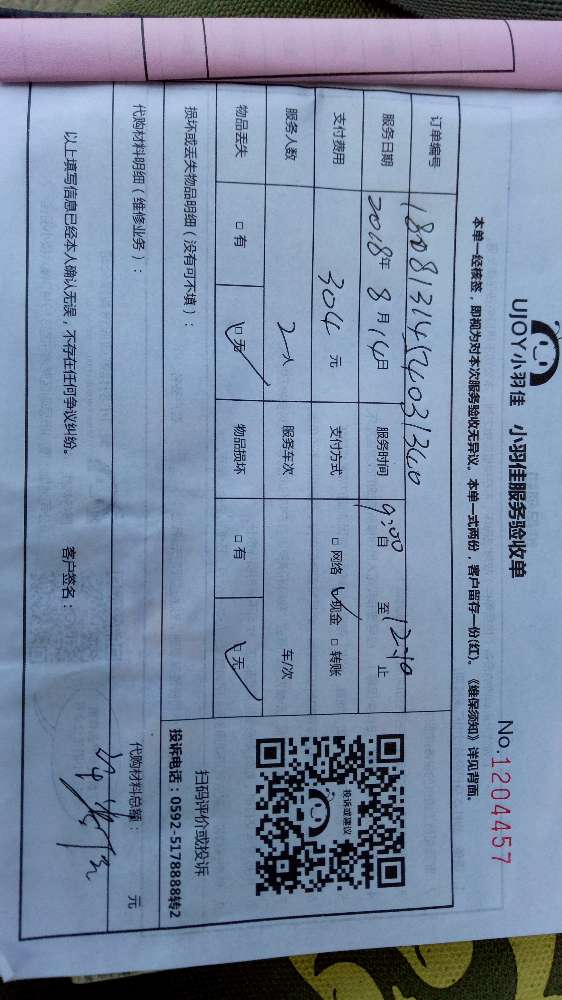 UJOY小羽佳 小羽佳服务验收单
No.1204457
本单一经核签，即视为对本次服务验收无异议。本单一式两份，客户留存一份(红)。《维保须知》详见背面。
订单编号 18081314540031340
服务日期 2018年8月14日 服务时间 9:00自 至12:10止
支付费用 304元 支付方式 □网络 ☑现金 □转账
服务人数 2人 服务车次 车/次
物品丢失 □有 ☑无 物品损坏 □有 ☑无
投诉或建议
扫码评价或投诉
投诉电话：0592-5178888转2
损坏或丢失物品明细（没有可不填）：
代购材料明细（维修业务）： 代购材料总额： 元
以上填写信息已经本人确认无误，不存在任何争议纠纷。 客户签名：